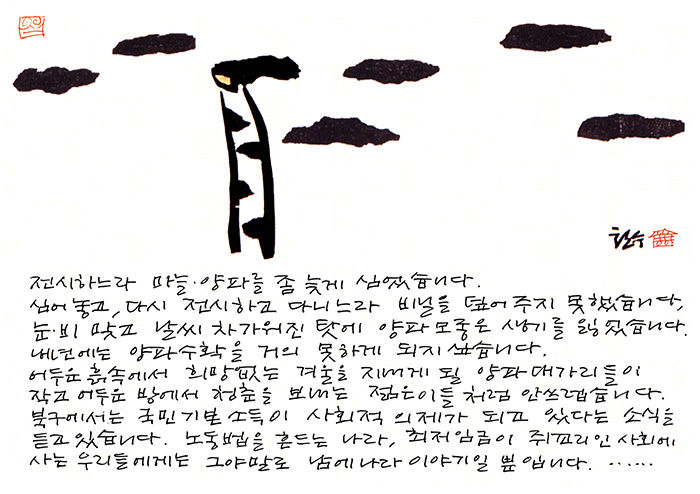 철수
전시하느라 마늘·양파를 좀 늦게 심었습니다.
심어 놓고, 다시 전시하고 다니느라 비닐을 덮어주지 못했습니다,
눈·비 맞고 날씨 차가워진 탓에 양파모종은 생기를 잃었습니다.
내년에는 양파수확을 거의 못하게 되지싶습니다.
어두운 흙속에서 희망없는 겨울을 지내게 될 양파대가리들이
작고 어두운 방에서 청춘을 보내는 젊은이들처럼 안쓰럽습니다.
북구에서는 국민기본소득이 사회적 의제가 되고 있다는 소식을
듣고있습니다. 노동법을 흔드는 나라, 최저임금이 쥐꼬리인 사회에
사는 우리들에게는 그야말로 남에나라 이야기일 뿐입니다. ······